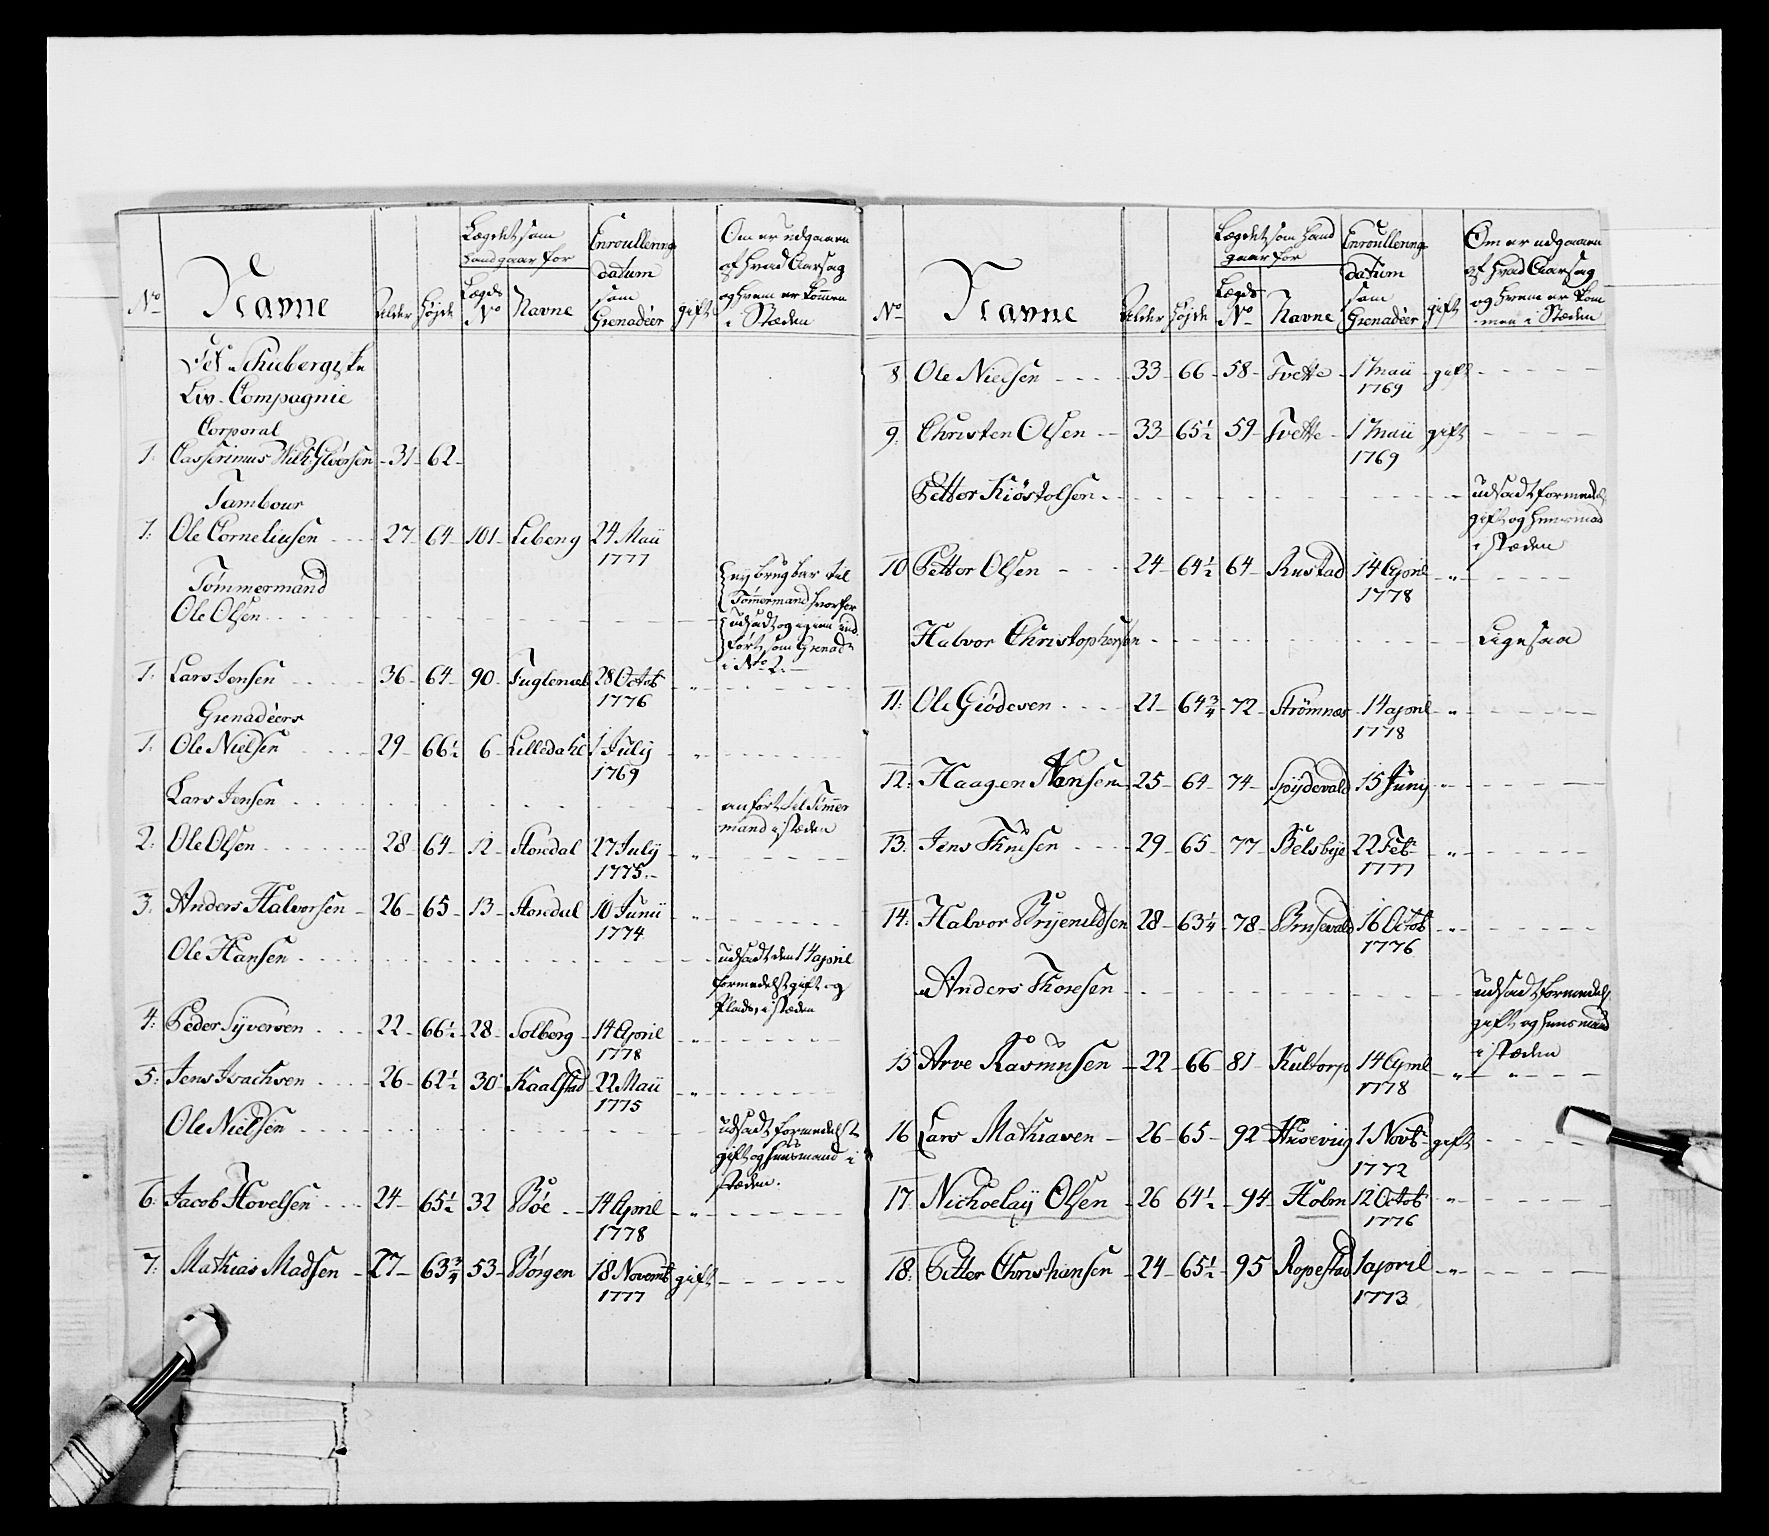 No Navne Alder Højde Lægdet som hand gaar for Lægds No Navne Enroullering datum som Grenadéer gift Om er udgaaen af hvad Aarsag og hvem er kommen i Stæden
Liv-Compagnie
Corporal
1: 31 62
Tambour
1: Ole Corneliusen 27 64 101 Liberg 24 Maii 1777
Tømmermand
Ole Olsen ubrugbar til Tømmermand hvorfor udsadt og igien ind ført som Grenadr i No 2.
1: Lars Jensen 36 64 90 28 Octob 1776 "
Grenadéers
1: Ole Nielsen 29 66½ 6 Lilledahl 1 Julij 1769 "
Lars Jensen anført til Tømmermand i stæden
2: Ole Olsen 28 64 12 Storedal 27 Julij 1775 "
3: Anders Halvorsen 26 65 13 Storedal 10 Junii 1774 "
Ole Hansen udsadt den 14 april formedelst gift og Plads, i stæden
4: Peder Syversen 22 66½ 28 Solberg 14 April 1778 "
5: Jens Isachsen 26 62½ 30 Kaalstad 22 Maii 1775 "
Ole Nielsen udsadt formedelst gift og huusmand i stæden.
6: Jacob Hovelsen 24 65½ 32 Bøe 14 April 1778 "
7: Mathias Madsen 27 63¾ 53 Børgen 18 Novemb 1777 gift
No Navne Alder Højde Lægdet som hand gaar for Lægds No Navne Enroullering datum som Grenadéer gift Om er udgaaen af hvad Aarsag og hvem er kommen i Stæden
8 Ole Nielsen 33 66 58 Tvette 1 Maii 1769 gift
9: Christen Olsen 33 65½ 59 Tvette 1 Maii 1769 gift
Petter Kiøstolsen udsadt formedelst gift og huusmand i stæden
10 Petter Olsen 24 64½ 64 Rustad 14 April 1778 "
Halvor Christophersen Ligesaa
11: Ole Giødesen 21 64¾ 72 Strømnæs 14 april 1778 "
12: Haagen Hansen 25 64 74 15 Junij "
13: Jens 29 65 77 Belsbye 22 Feb 1777 "
14: Halvor Brijenildsen 28 63¼ 78 Brusevald 16 Octob 1776 "
Anders Thoresen udsadt formedelst gift og huusmand i stæden
15 Arve Rasmusen 22 66 81 Kultorp 14 April 1778 "
16 Lars Mathiasen 26 65 92 1 Novb 1772 gift
17: Nichoelaij Olsen 26 64½ 94 Holm 12 Octob 1776 "
18: Petter Christiansen 24 65½ 95 Ropestad 1 april 1773 "